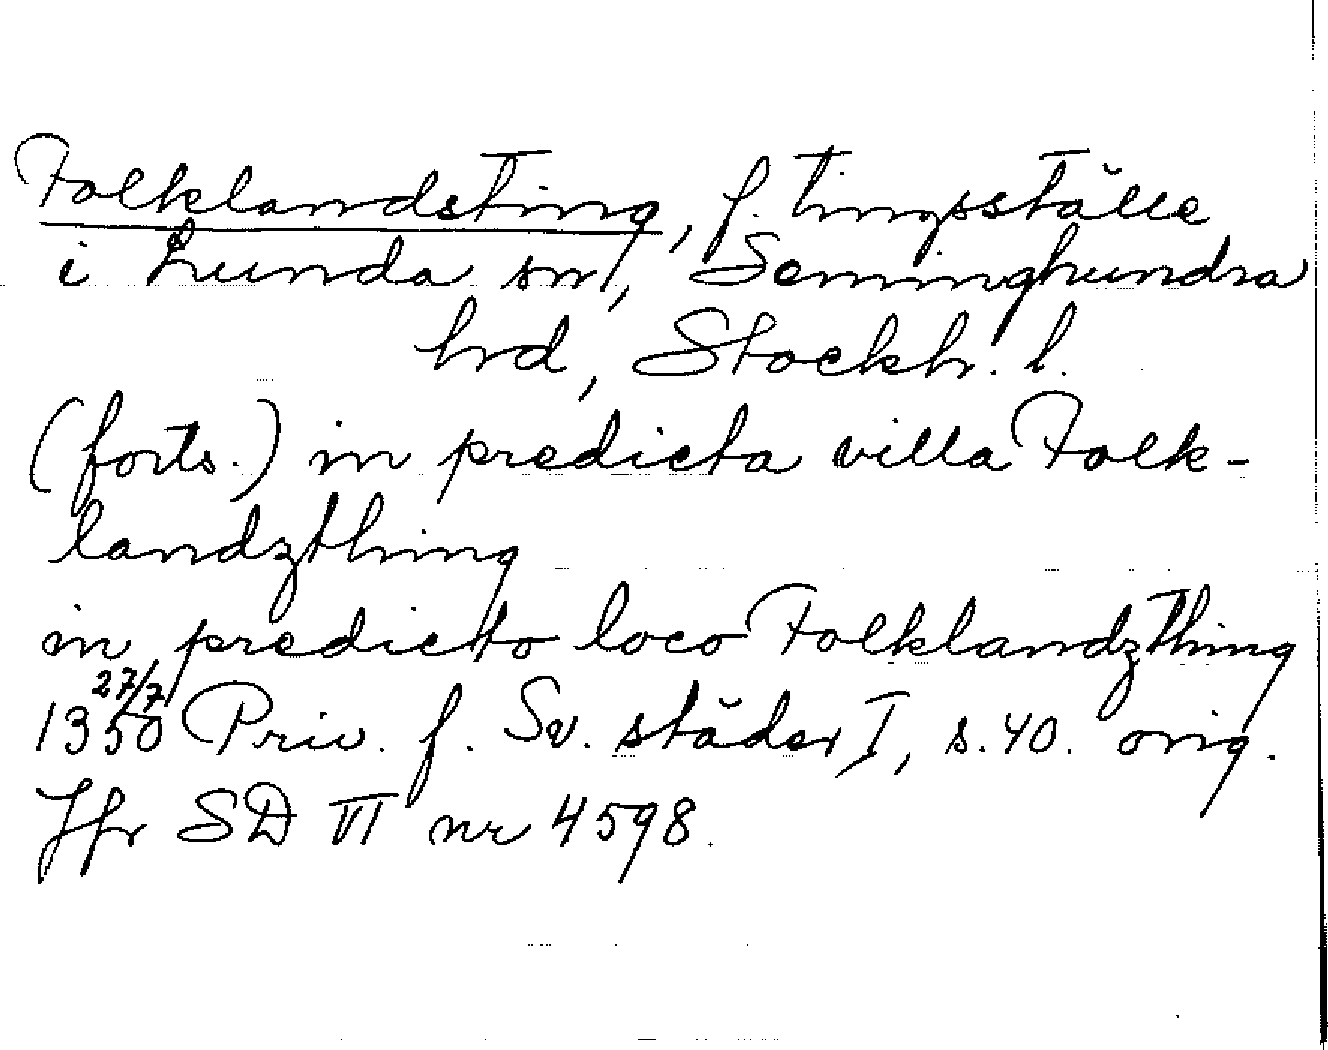 Folklandsting, f. tingsställe
i Lunda sn, Seminghundra
hrd, Stockh. l.
(forts.) in predicta villa Folk-
landzthing
in predicto loco Folklandzthing
27/7
1350 Priv. f. Sv. städer I, s. 40. orig.
Jfr SD VI nr 4598.